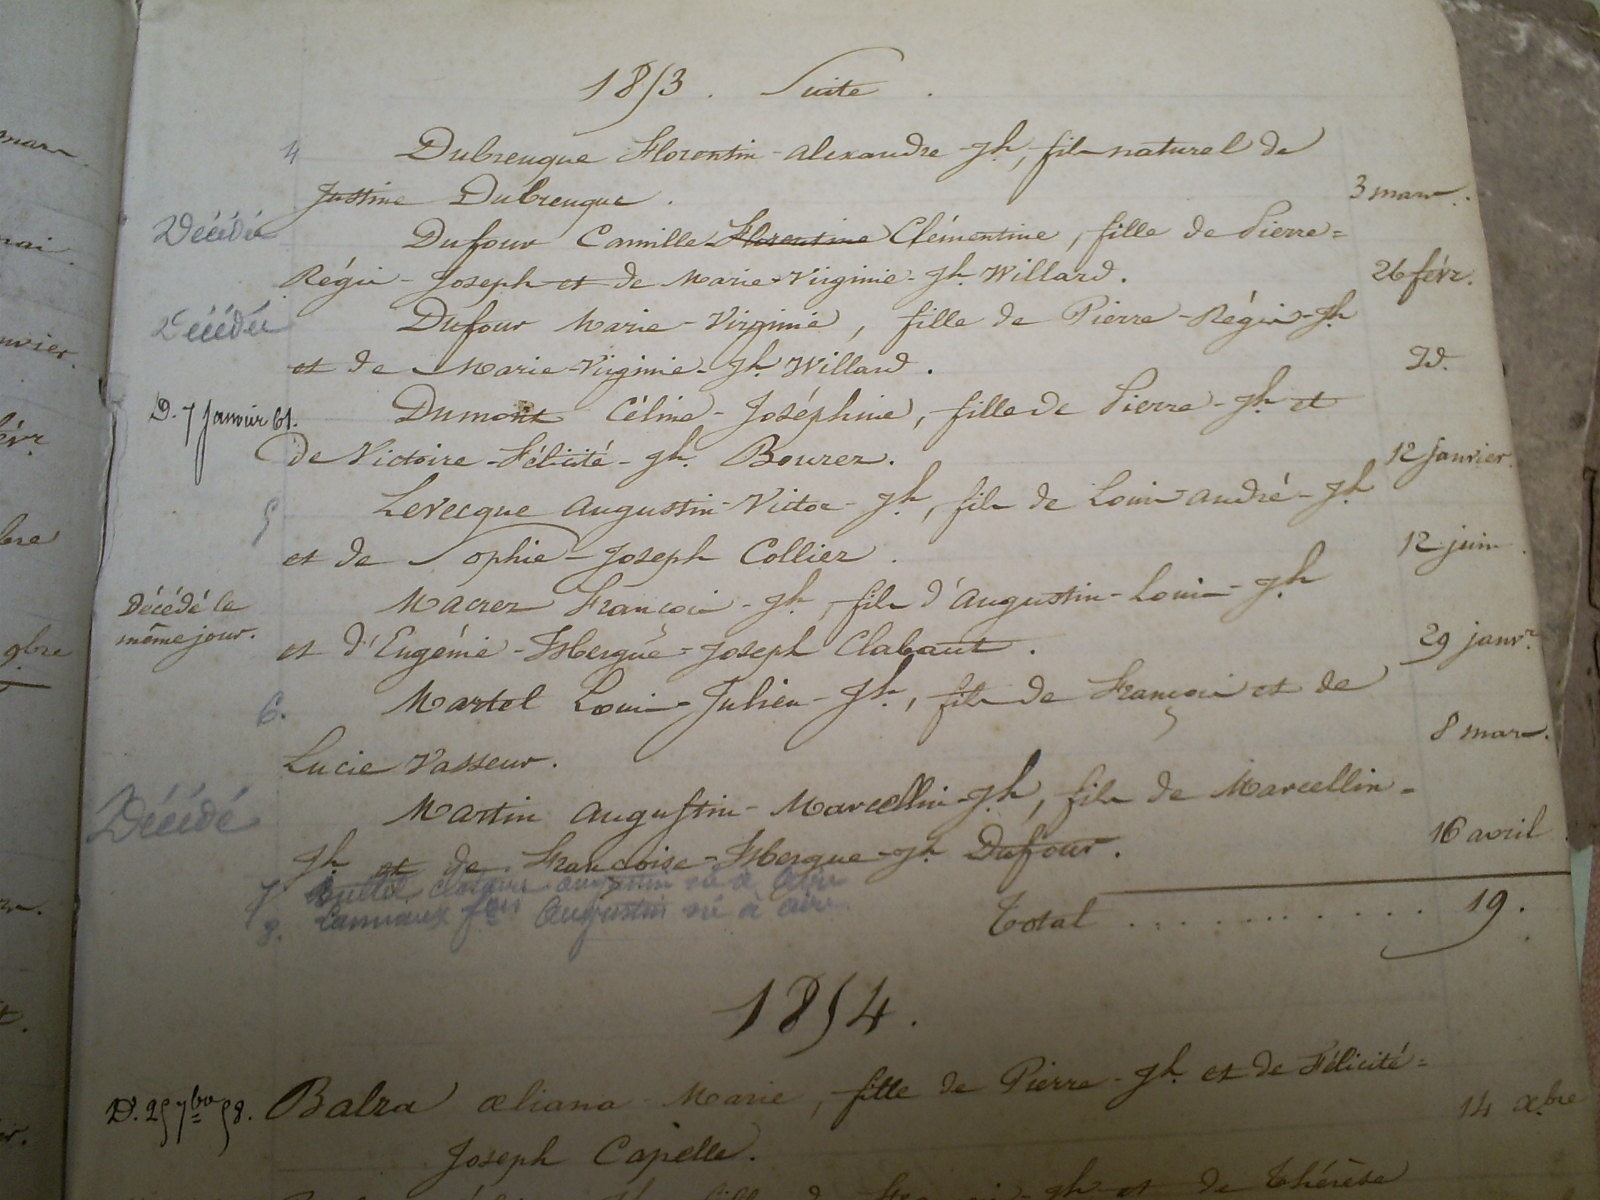 1853. Suite.
4 Dubreuque Florentin-Alexandre-Jh, fils naturel de
Justine Dubreuque. 3 mars.
Décédée Dufour Camille Florentine Clémentine, fille de Pierre=
Régis-Joseph et de Marie-Virginie-Jh. Willard. 26 févr.
Décédée Dufour Marie-Virginie, fille de Pierre-Régis-Jh
et de Marie-Virginie-Jh Willard. Id.
D. 7 Janvier 61. Dumont Céline-Joséphine, fille de Pierre-Jh. et
de Victoire-Félicité-Jh. Bourez. 12 Janvier.
5 Levecque Augustin-Victor-Jh, fils de Louis-André-Jh
et de Sophie-Joseph Collier. 12 juin.
Décédé le Macrez François-Jh, fils d'Augustin-Louis-Jh
même jour. et d'Eugénie-Isbergue-Joseph Clabaut. 29 janvr.
6. Martel Louis-Julien-Jh., fils de François et de
Lucie Vasseur. 8 mars.
Décédé Martin Augustin-Marcellin-Jh, fils de Marcellin-
Jh et de Françoise-Isbergue-Jh Dufour. 16 avril
7. augustin né à Aire
8. Lannaux fois Augustin né à aire
Total . . . . . . . . . . 19.
1854.
D. 25 7bre 58. Balza Æliana Marie, fille de Pierre-Jh. et de Félicité=
Joseph Capelle. 14 Xbre
fille de et de Thérèse